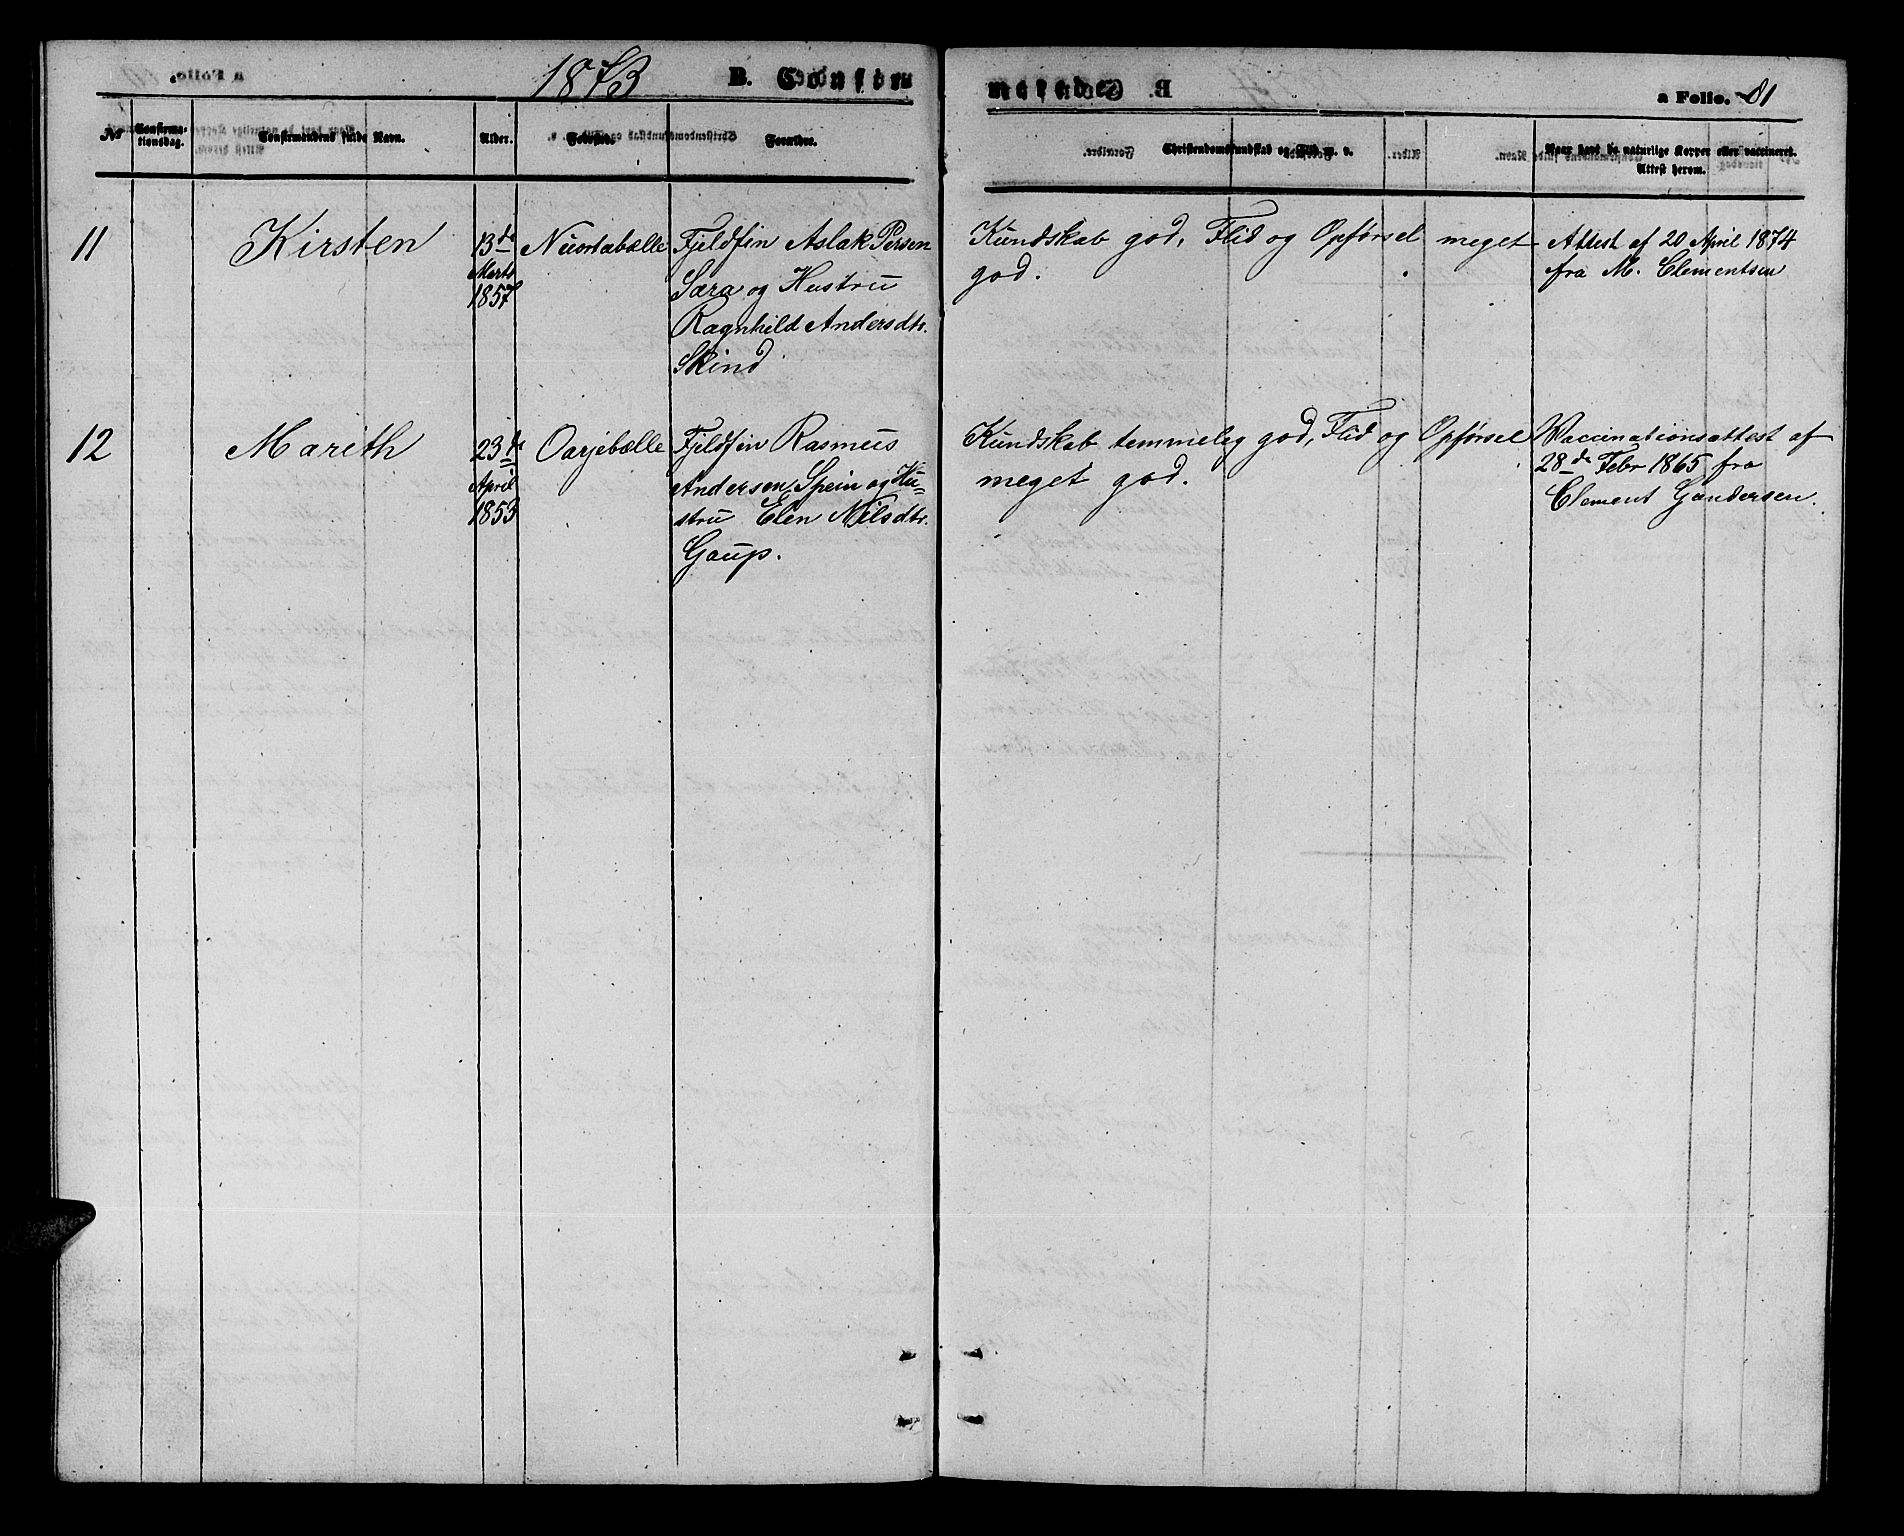 1873 B. Confir
a Folio. 81
No Confirma-tionsdag. Confirmandens fulde Navn. Alder. Fødested. Forældre.
Christendomskundskab og Flid m. v. Naar havt de naturlige Kopper eller vaccineret. Attest herom.
11 Kirsten 13de Nuortabælle Fjeldfin Aslak Persen Kundskab god, Flid og Opførsel meget Attest af 20 April 1874
Marts Sara og Hustru god. fra M. Clementsen
1857 Ragnhild Andersdtr.
Skind
12 Marith 23de Oarjebælle Fjeldfin Rasmus Kundskab temmelig god, Flid og Opførsel Vaccinationsattest af
April Andersen Spein og Hu- meget god. 28de Febr 1865 fra
1853 stru Elen Nilsdtr. Clement Gundersen.
Gaup.